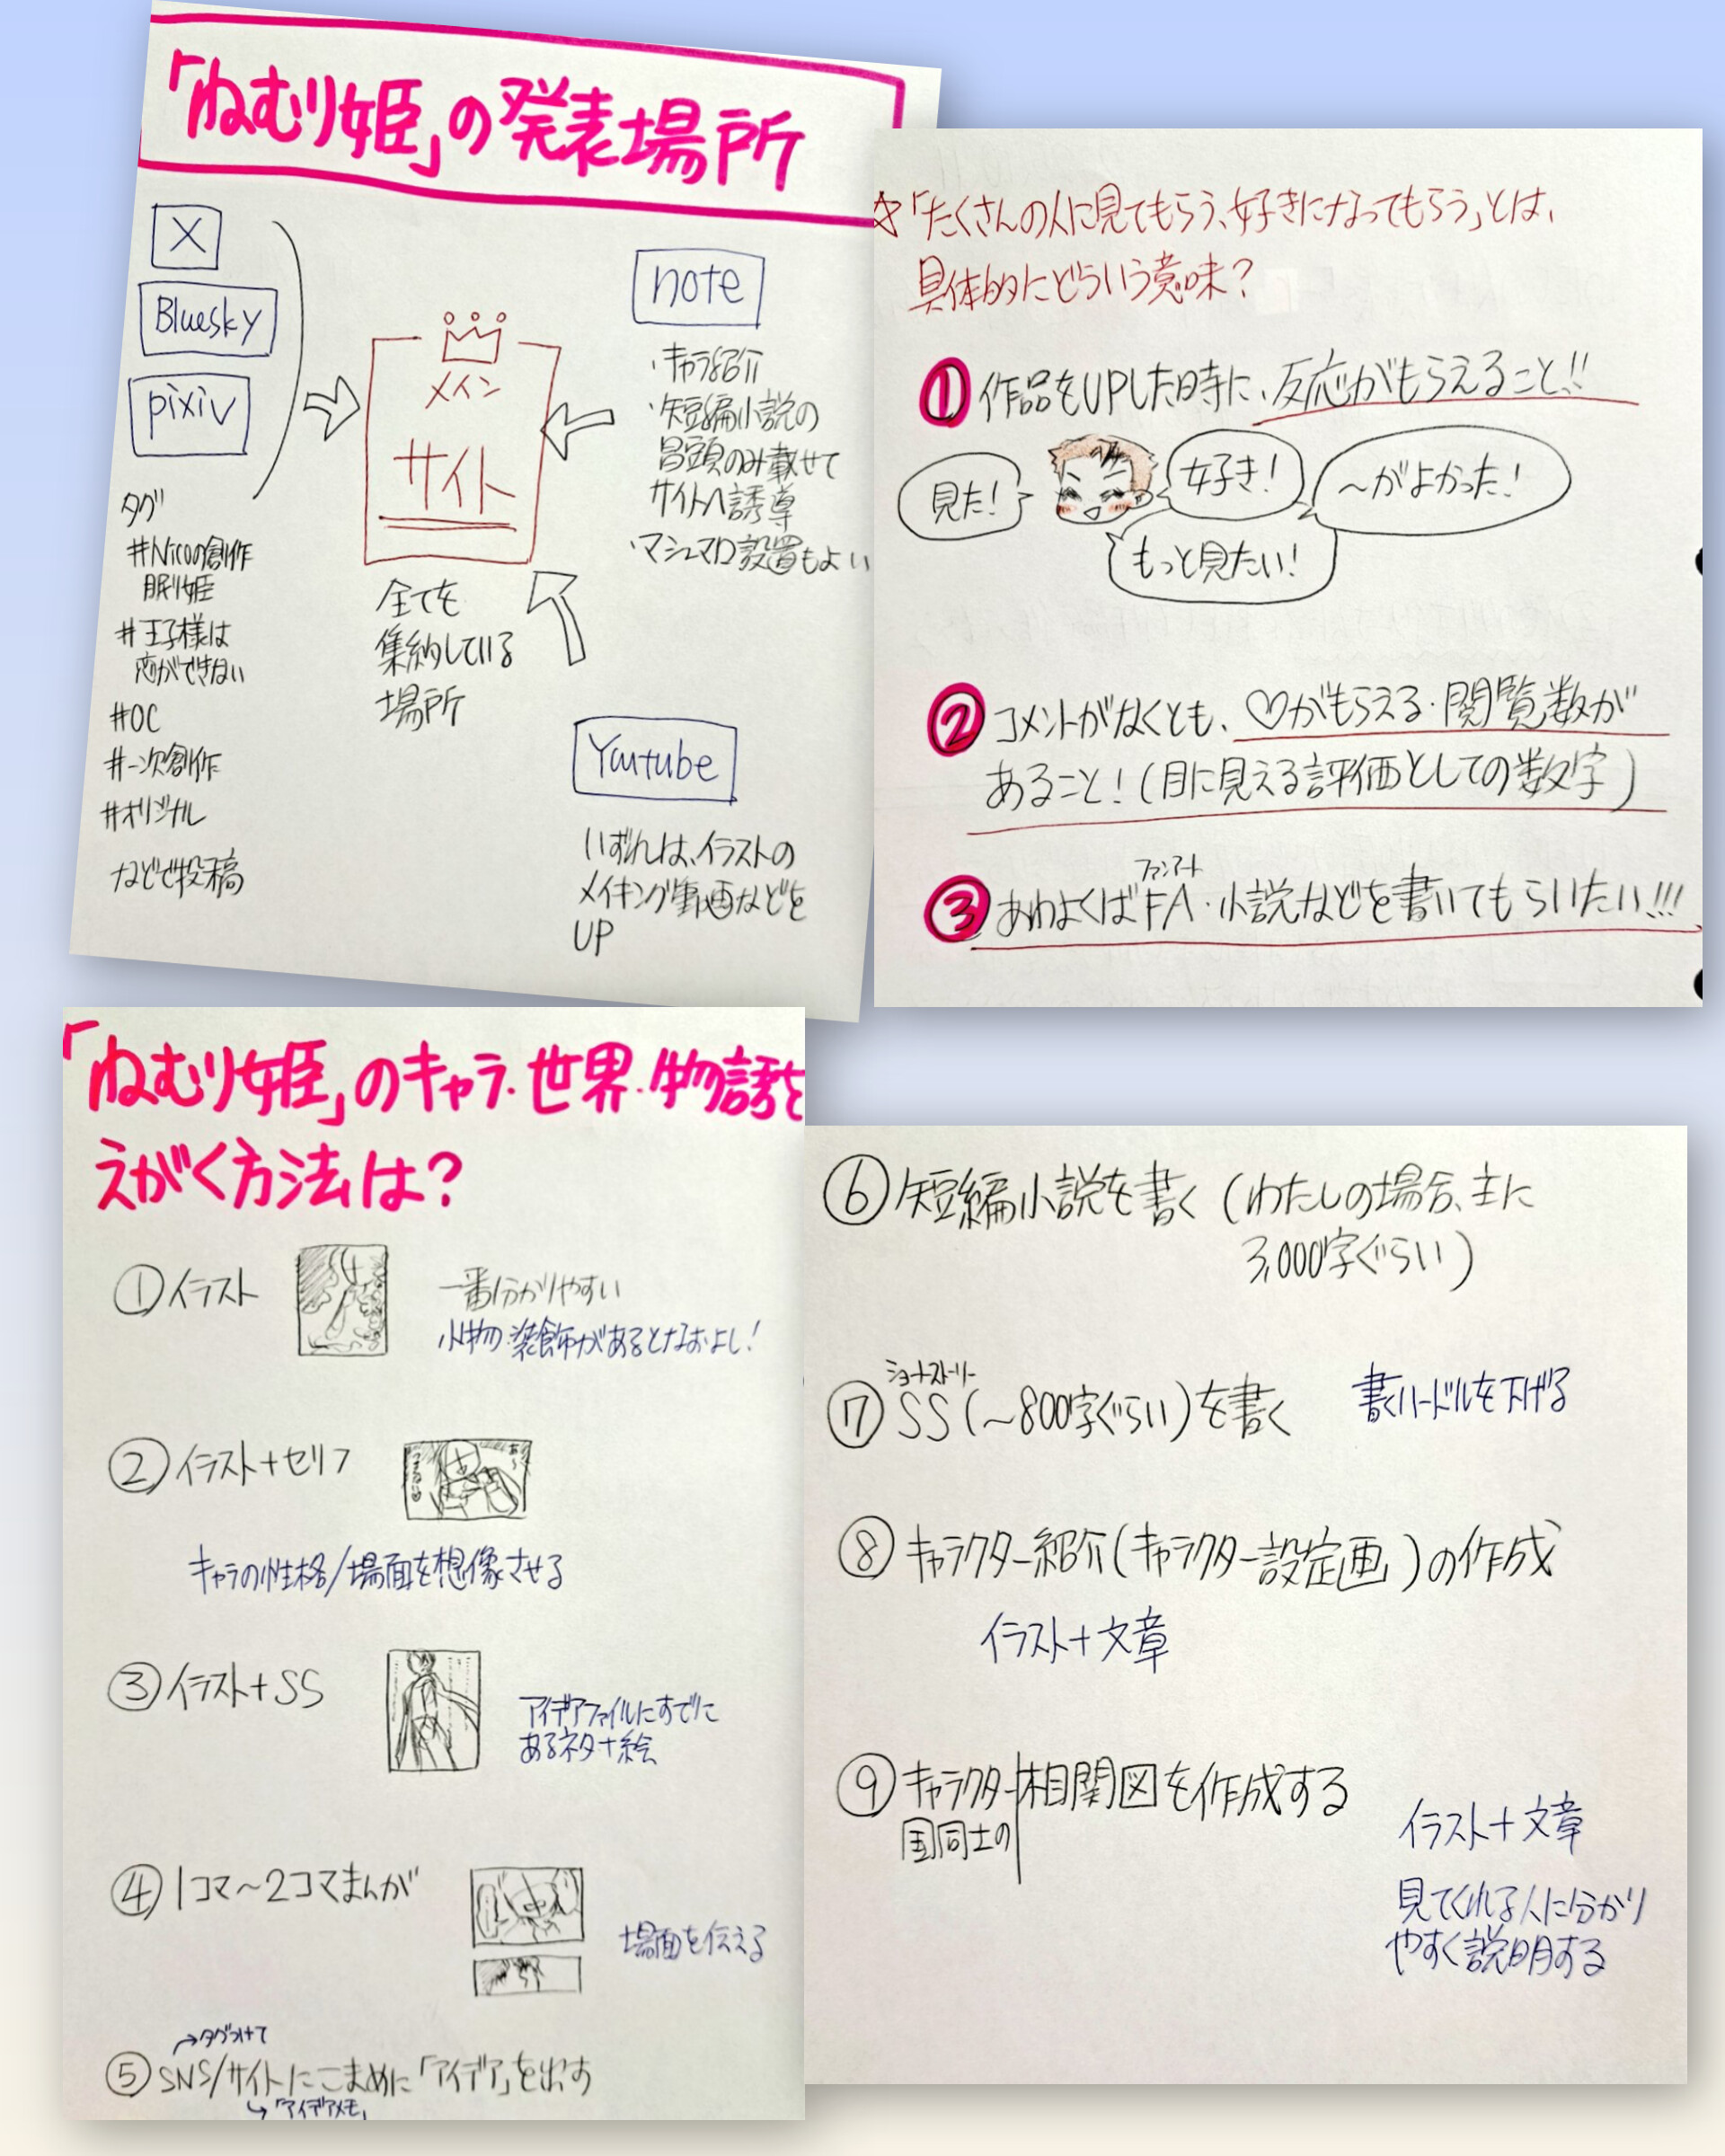 「ねむり姫」の発表場所
X
Bluesky
pixiv
タグ
#Nicoの創作
眠り姫
#王子様は
恋ができない
#OC
#一次創作
#オリジナル
などで投稿
メイン
サイト
全てを
集納している
場所
note
・キャラ紹介
・短編小説の
冒頭のみ載せて
サイトへ誘導
・マシュマロ設置もよい
Youtube
いずれは、イラストの
メイキング動画などを
UP
☆「たくさんの人に見てもらう、好きになってもらう」とは、
具体的にどういう意味？
① 作品をUPした時に、反応がもらえること!!
見た！
好き！
〜がよかった！
もっと見たい！
② コメントがなくとも、♡がもらえる・閲覧数が
あること！(目に見える評価としての数字)
ファンアート
③ あわよくばFA・小説などを書いてもらいたい!!!
「ねむり姫」のキャラ・世界・物語を
えがく方法は？
① イラスト
一番分かりやすい
小物・装飾があるとなおよし！
② イラスト+セリフ
キャラの性格/場面を想像させる
③ イラスト+SS
アイデアファイルにすでに
あるネタ+絵
④ 1コマ〜2コマまんが
場面を伝える
→タグつけて
⑤ SNS/サイトにこまめに「アイデア」を出す
↳「アイデアメモ」
⑥ 短編小説を書く (わたしの場合、主に
3,000字ぐらい)
ショートストーリー
⑦ SS(〜800字ぐらい)を書く
書くハードルを下げる
⑧ キャラクター紹介(キャラクター設定画)の作成
イラスト+文章
⑨ キャラクター相関図を作成する
国同士の
イラスト+文章
見てくれる人に分かり
やすく説明する